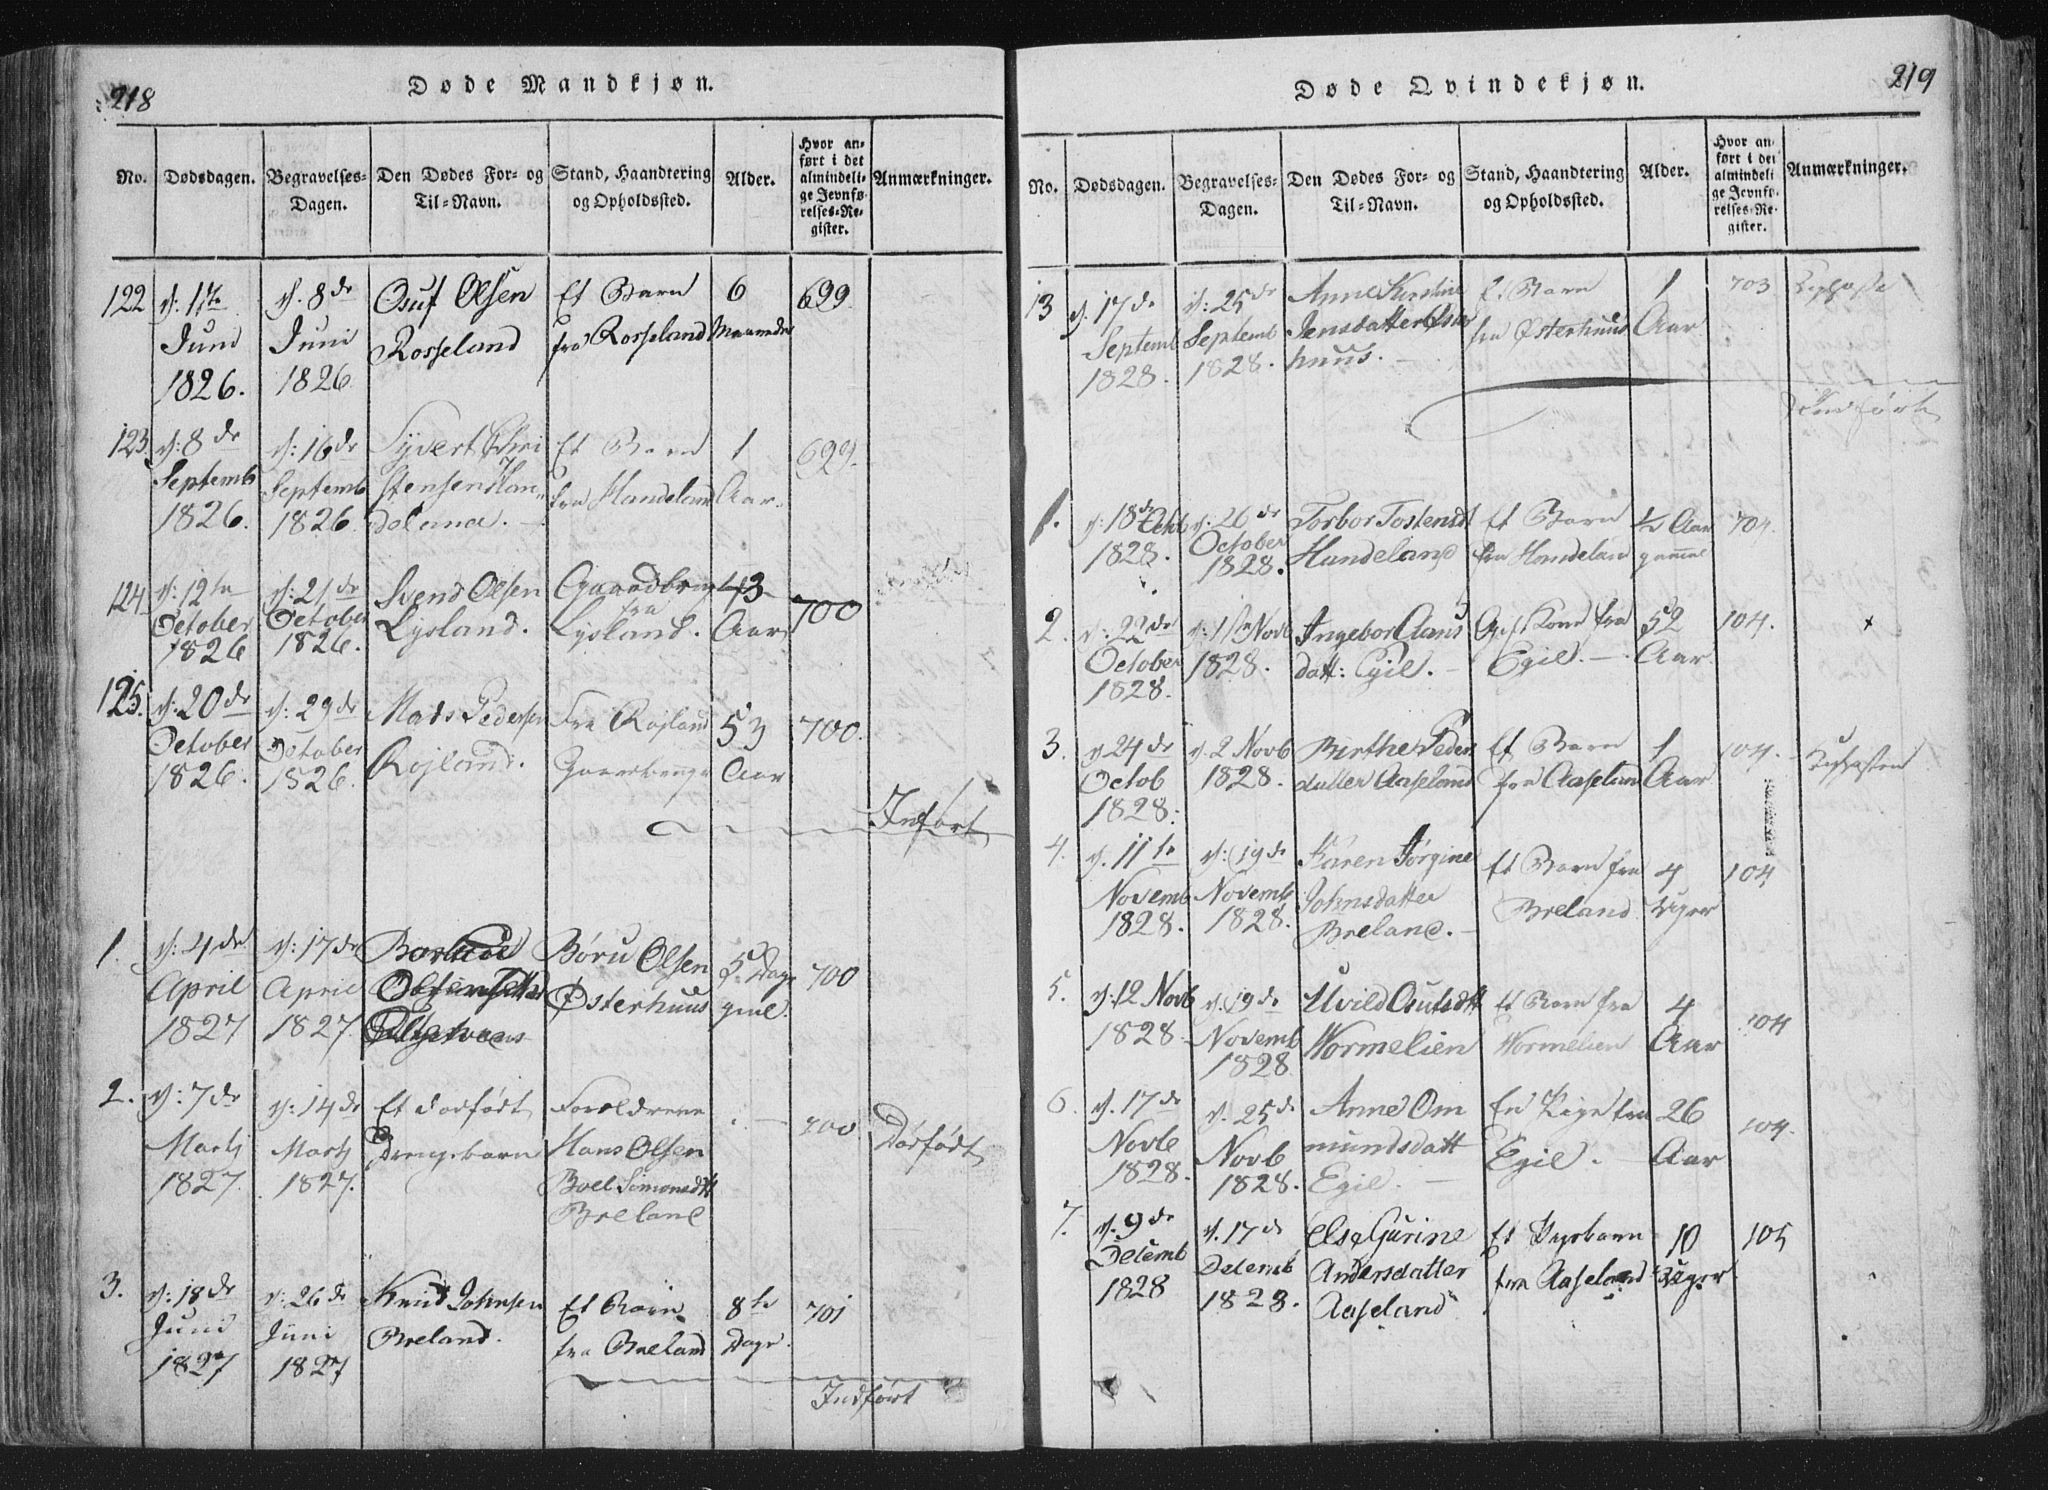 218
Døde Mandkjøn.
No.
Dødsdagen.
Begravelses-
Dagen.
Den Dødes For- og
Til-Navn.
Stand, Haandtering
og Opholdssted.
Alder.
Hvor an-
ført i det
almindeli-
ge Jevnfø-
relses-Re-
gister.
Anmærkninger.
122
d: 1ste
Juni
1826.
d. 8de
Juni
1826
Osuf Olsen
Rosseland
Et Barn
fra Rosseland
6
Maaneder
699.
123.
d: 8de
Septemb
1826.
d: 16de
Septemb
1826.
Syvert Chri
stensen Han
deland. -
Et Barn
fra Handeland
1
Aar.
699.
124.
d: 12te
October
1826
d: 21de
October
1826.
Svend Olsen
Lysland.
fra
Lysland.
43
Aar
700
125.
d: 20de
October
1826.
d: 29de
October
1826.
Mads Pedersen
Røjland.
Fra Røjland
53
Aar
700.
Inført
1.
d: 4de
April
1827
d: 17de
April
1827.
Børu Olsen
Østerhuus
5 Dage
gml.
700
2.
d: 7de
Martj
1827.
d: 14de
Martj
1827.
Et dødfødt
Drengebarn
Forældrene
Hans Olsen
Boel Simonsdtt
Breland
700
Dødfødt
3.
d: 18de
Juni
1827
d: 26de
Juni
1827
Knud Johnsen
Breland.
Et Barn
fra Breland
8te
Dage
701
Indført
219
Døde Qvindekjøn.
No.
Dødsdagen.
Begravelses-
Dagen.
Den Dødes For- og
Til-Navn.
Stand, Haandtering
og Opholdssted.
Alder.
Hvor an-
ført i det
almindeli
ge Jevnfø-
relses-Re-
gister.
Anmærkninger.
13
d. 17de
Septemb
1828.
d: 25de
Septemb
1828.
Anne Kirstine
Jensdatter Øster
huus. -
Et Barn
fra Østerhuus
1
Aar
703
Indført
1.
d: 18de Octb
1828.
d. 26de
October
1828.
Torbor Tostensdt
Handeland
Et Barn
fra Handeland
½ Aar
gammel
704.
2.
d: 22de
October
1828.
d: 1ste Novb
1828.
Ingebor Aanus
datt: Egil. -
Gift Kone fra
Egil. -
52
Aar.
104.
3.
d 24de
Octob
1828.
d. 2 Novb
1828.
Birthe Peder
datter Aaseland
Et Barn
fra Aaseland
1
Aar
104.
4.
d. 11te
Novemb
1828.
d: 19de
Novemb
1828.
Karen Jørgine
Johnsdatter
Breland. -
Et Barn fra
Breland
4
Uger
104
5.
d: 12 Novb
1828
d. 19de
Novemb
1828
Uvild Osufsdtt
Wormelien
Et Barn fra
Wormelien
4
Aar
104
6.
d. 17de
Novb
1828.
d. 25de
Novb
1828.
Anne Om
mundsdatt
Egil. -
En Pige fra
Egil. -
26
Aar
104.
7.
d. 9de
Decemb
1828
d. 17de
Decemb
1828.
Else Gurine
Andersdatter
Aaseland
Et Pigebarn
fra Aaseland
10
Uger
105